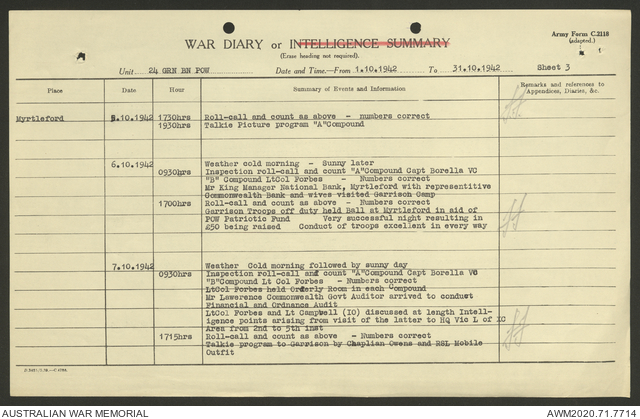 Army Form C.2118
(adapted.)
WAR DIARY or INTELLIGENCE SUMMARY
(Erase heading not required).
Unit 24 GRN BN POW Date and Time.—From 1.10.1942 To 31.10.1942 Sheet 3
Place Date Hour Summary of Events and Information Remarks and references to Appendices, Diaries, &c.
Myrtleford 5.10.1942 1730hrs Roll-call and count as above - numbers correct
1930hrs Talkie Picture program "A"Compound
6.10.1942 Weather cold morning - Sunny later
0930hrs Inspection roll-call and count "A"Compound Capt Borella VC
"B" Compound LtCol Forbes - Numbers correct
Mr King Manager National Bank, Myrtleford with representitive
Commonwealth Bank and wives visited Garrison Camp
1700hrs Roll-call and count as above - Numbers correct
Garrison Troops off duty held Ball at Myrtleford in aid of
POW Patriotic Fund Very successful night resulting in
£50 being raised Conduct of troops excellent in every way
7.10.1942 Weather Cold morning followed by sunny day
0930hrs Inspection roll-call and count "A"Compound Capt Borella VC
"B"Compound Lt Col Forbes - Numbers correct
LtCol Forbes held Orderly Room in each Compound
Mr Lawerence Commonwealth Govt Auditor arrived to conduct
Financial and Ordnance Audit
LtCol Forbes and Lt Campwell (IO) discussed at length Intell-
igence points arising from visit of the latter to HQ Vic L of IC
Area from 2nd to 5th inst
1715hrs Roll-call and count as above - Numbers correct
Talkie program to Garrison by Chaplian Owens and RSL Mobile
Outfit
AUSTRALIAN WAR MEMORIAL
AWM2020.71.7714